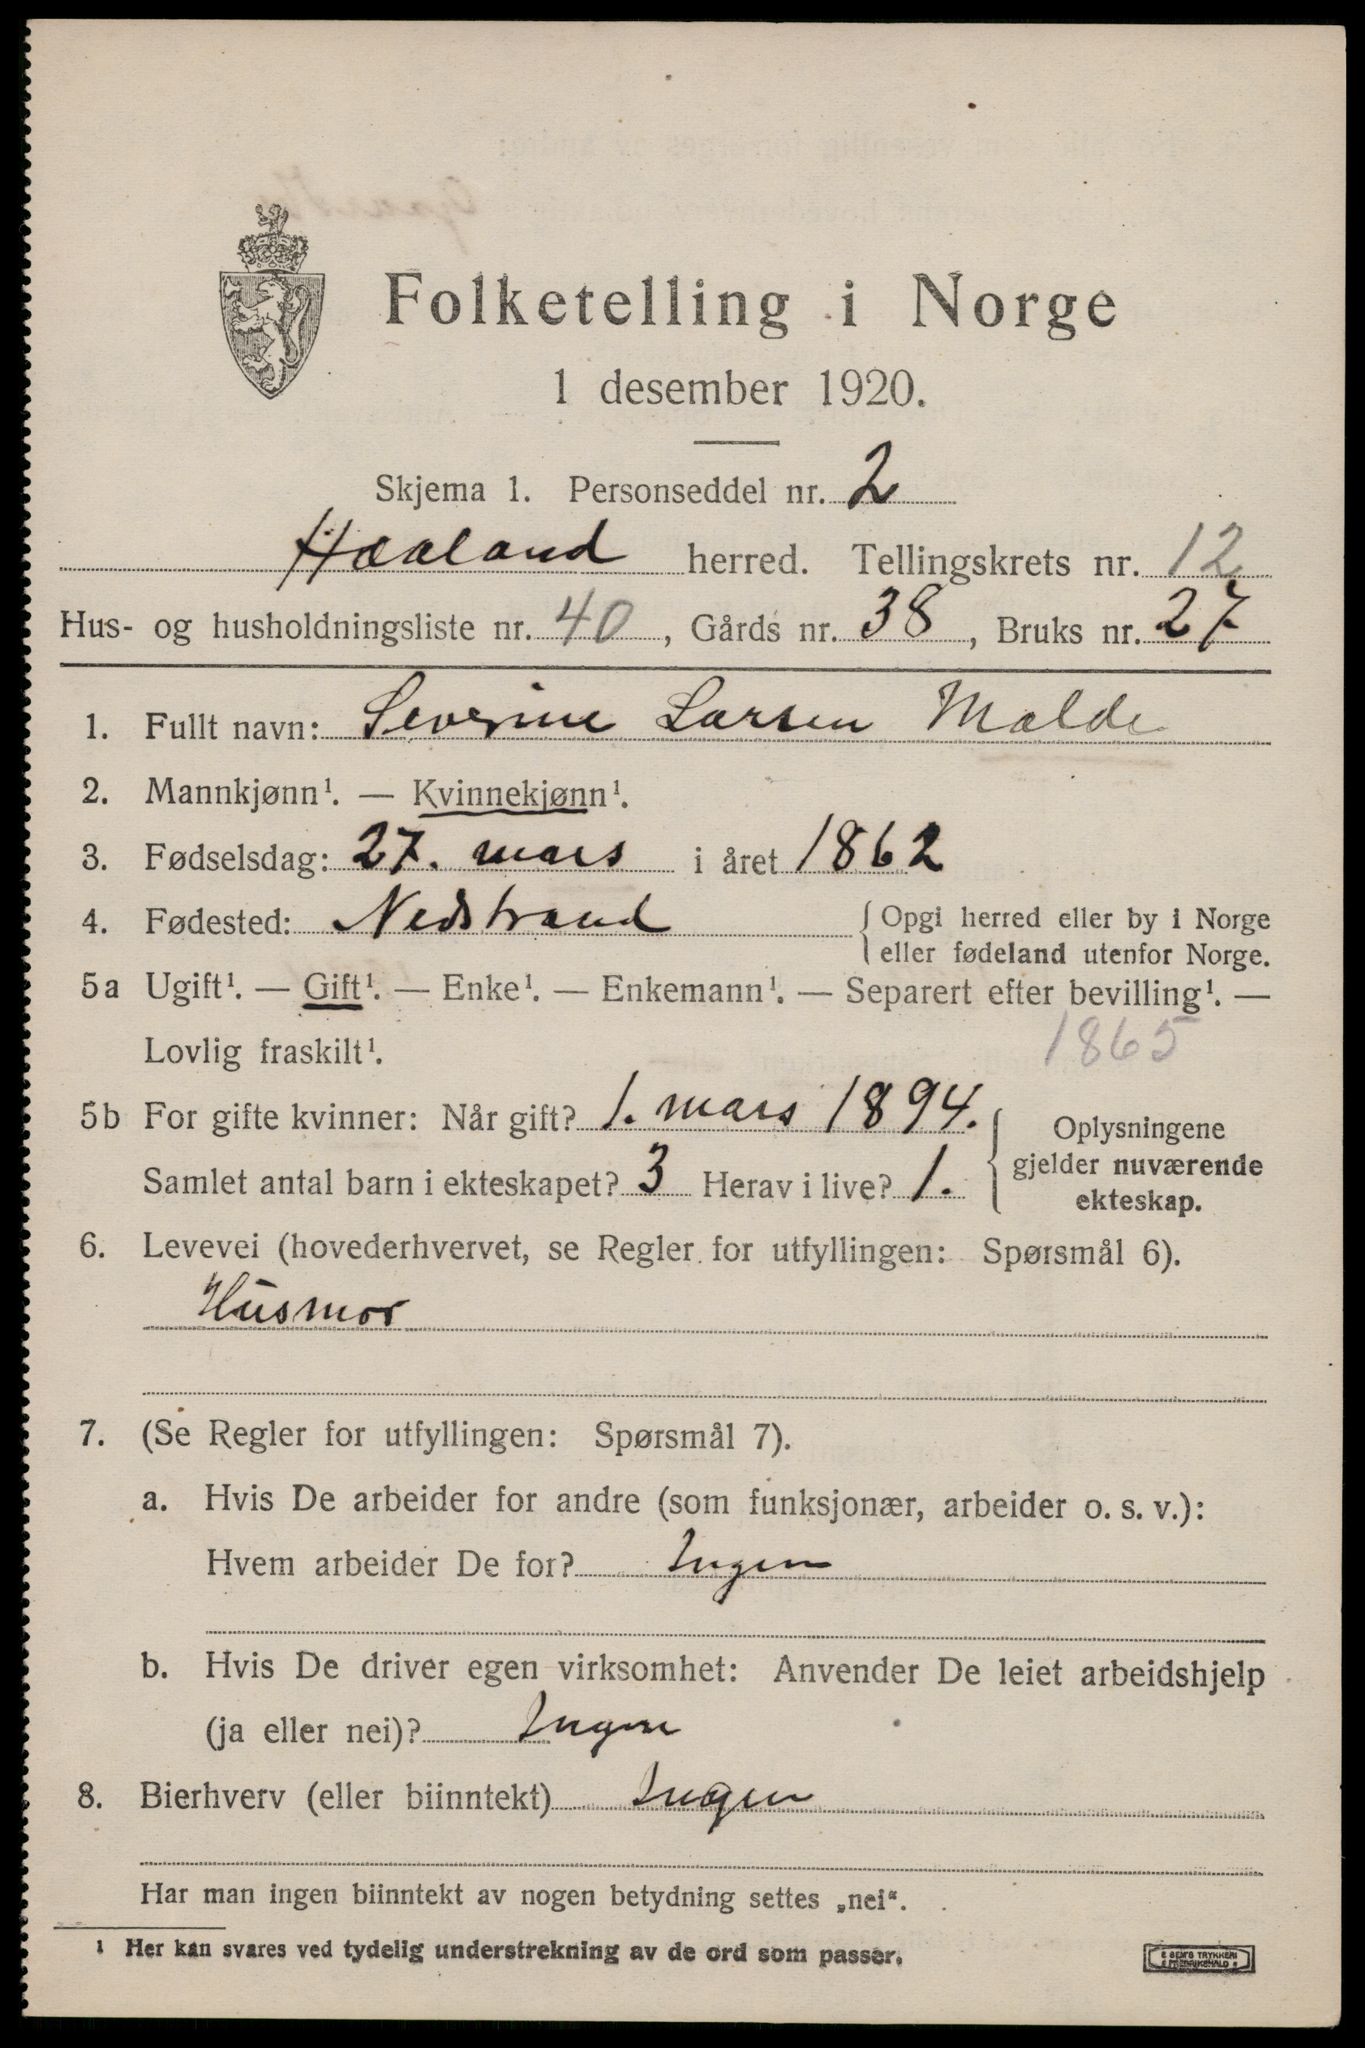 Folketelling i Norge
1 desember 1920.
Skjema 1. Personseddel nr. 2
Haaland herred. Tellingskrets nr. 12
Hus- og husholdningsliste nr. 40, Gårds nr. 38, Bruks nr. 27
1. Fullt navn: Severine Larsen Malde
2. Mannkjønn¹. — Kvinnekjønn¹.
3. Fødselsdag: 27. mars i året 1862
4. Fødested: Nedstrand { Opgi herred eller by i Norge
eller fødeland utenfor Norge.
5a Ugift¹. — Gift¹. — Enke¹. — Enkemann¹. — Separert efter bevilling¹. —
Lovlig fraskilt¹. 1865
5b For gifte kvinner: Når gift? 1. mars 1894. { Oplysningene
gjelder nuværende
ekteskap.
Samlet antal barn i ekteskapet? 3 Herav i live? 1.
6. Levevei (hovederhvervet, se Regler for utfyllingen: Spørsmål 6).
Husmor
7. (Se Regler for utfyllingen: Spørsmål 7).
a. Hvis De arbeider for andre (som funksjonær, arbeider o. s. v.):
Hvem arbeider De for? Ingen
b. Hvis De driver egen virksomhet: Anvender De leiet arbeidshjelp
(ja eller nei)? Ingen
8. Bierhverv (eller biinntekt) Ingen
Har man ingen biinntekt av nogen betydning settes „nei“.
¹ Her kan svares ved tydelig understrekning av de ord som passer.